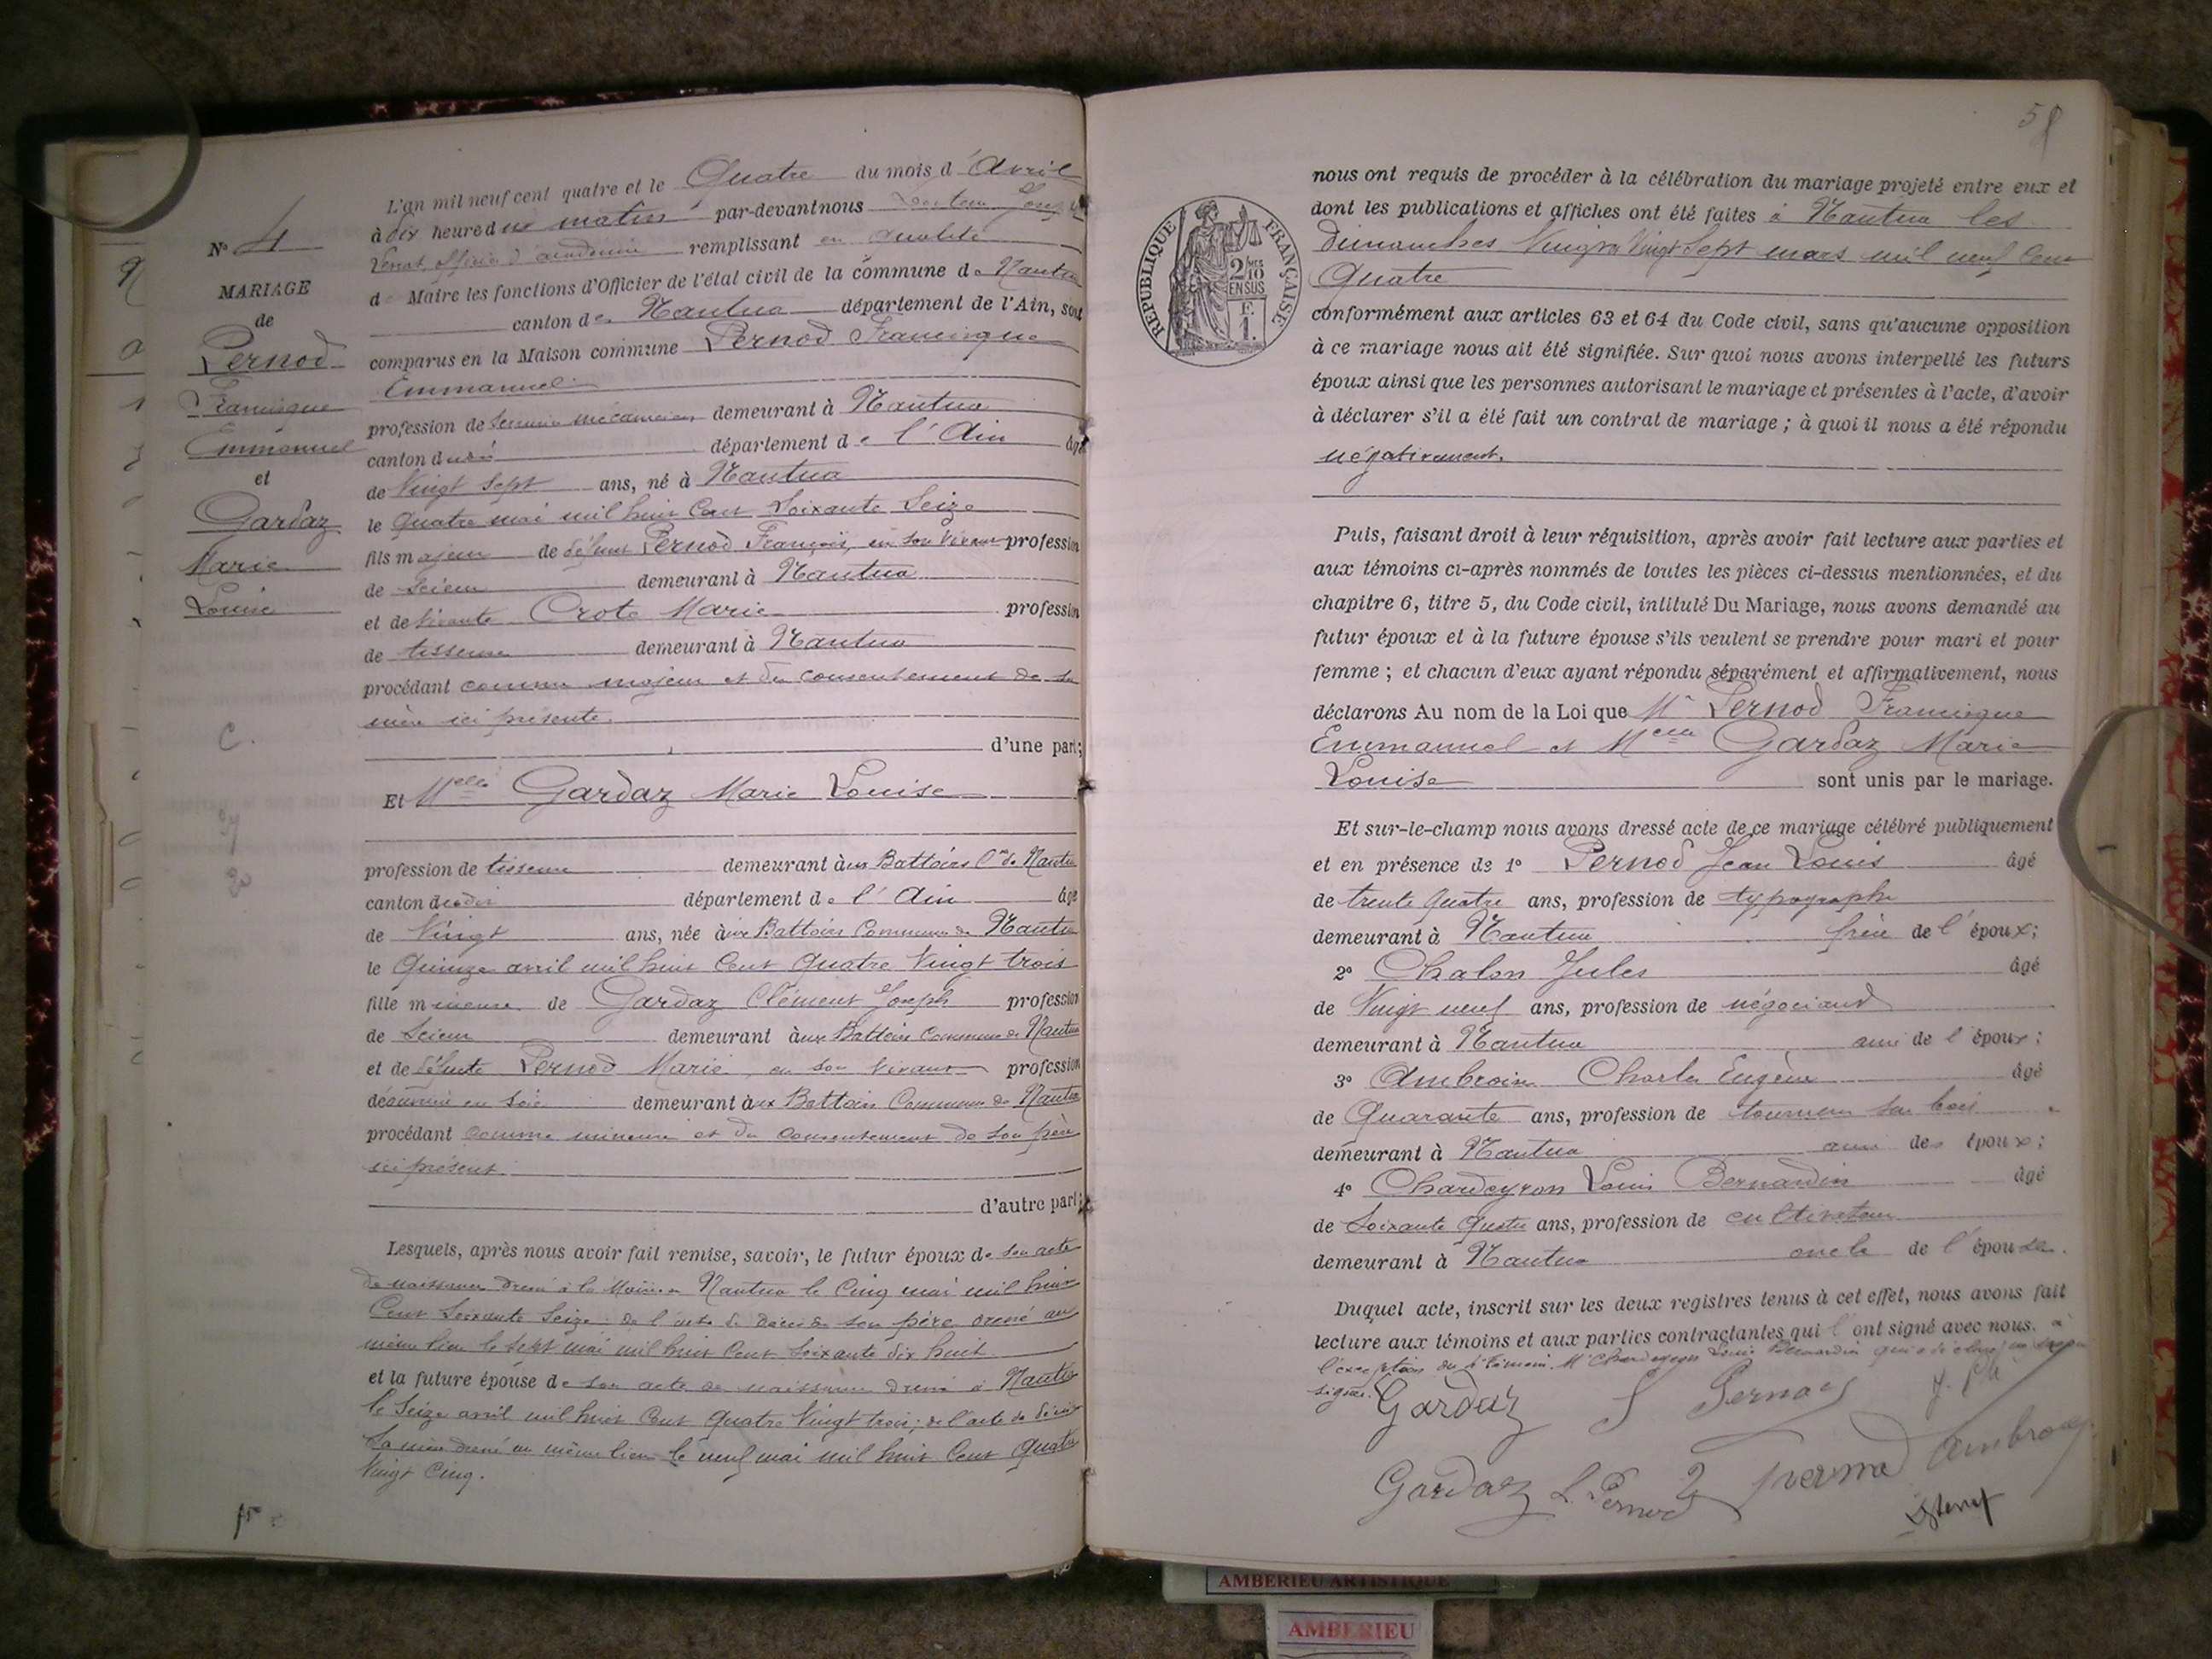 L'an mil neuf cent quatre et le Quatre du mois d'Avril
à dix heures du matin par-devant nous
officier d'académie remplissant en qualité
de Maire les fonctions d'Officier de l'état civil de la commune de Nantua
canton de Nantua département de l'Ain, sont
comparus en la Maison commune Pernod Francisque
Emmanuel
profession de serrurier mécanicien demeurant à Nantua
canton dudit département de l'Ain âgé
de Vingt Sept ans, né à Nantua
le Quatre mai mil huit Cent Soixante Seize
fils majeur de défunt Pernod François, en son vivant profession
de scieur demeurant à Nantua
et de vivante Crote Marie profession
de tisseuse demeurant à Nantua
procédant comme majeur et du consentement de sa
mère ici présente.
d'une part;
Et Melle Gardaz Marie Louise
profession de tisseuse demeurant aux Battoirs Cne de Nantua
canton dudit département de l'Ain âgée
de Vingt ans, née aux Battoirs Commune de Nantua
le Quinze avril mil huit Cent Quatre Vingt trois
fille mineure de Gardaz Clément Joseph profession
de Scieur demeurant aux Battoirs Commune de Nantua
et de défunte Pernod Marie, en son vivant profession
en soie demeurant aux Battoirs Commune de Nantua
procédant comme mineure et du consentement de son père
ici présent.
d'autre part;
Lesquels, après nous avoir fait remise, savoir, le futur époux de son acte
de naissance dressé à la Mairie de Nantua le Cinq mai mil huit
Cent Soixante Seize; de l'acte de décès de son père dressé au
même lieu le sept mai mil huit Cent Soixante dix huit
et la future épouse de son acte de naissance dressé à Nantua
le Seize avril mil huit Cent Quatre Vingt trois; de l'acte de décès
sa mère dressé au même lieu le neuf mai mil huit Cent Quatre
Vingt Cinq.
N° 4
MARIAGE
de
Pernod
Francisque
Emmanuel
et
Gardaz
Marie
Louise
58
RÉPUBLIQUE FRANÇAISE
2/10 EN SUS
F. 1.
nous ont requis de procéder à la célébration du mariage projeté entre eux et
dont les publications et affiches ont été faites à Nantua les
dimanches Vingt et Vingt Sept mars mil neuf Cent
Quatre
conformément aux articles 63 et 64 du Code civil, sans qu'aucune opposition
à ce mariage nous ait été signifiée. Sur quoi nous avons interpellé les futurs
époux ainsi que les personnes autorisant le mariage et présentes à l'acte, d'avoir
à déclarer s'il a été fait un contrat de mariage ; à quoi il nous a été répondu
négativement.
Puis, faisant droit à leur réquisition, après avoir fait lecture aux parties et
aux témoins ci-après nommés de toutes les pièces ci-dessus mentionnées, et du
chapitre 6, titre 5, du Code civil, intitulé Du Mariage, nous avons demandé au
futur époux et à la future épouse s'ils veulent se prendre pour mari et pour
femme ; et chacun d'eux ayant répondu séparément et affirmativement, nous
déclarons Au nom de la Loi que Mr Pernod Francisque
Emmanuel et Melle Gardaz Marie
Louise sont unis par le mariage.
Et sur-le-champ nous avons dressé acte de ce mariage célébré publiquement
et en présence de 1° Pernod Jean Louis âgé
de trente quatre ans, profession de typographe
demeurant à Nantua frère de l'époux;
2° Chalon Jules âgé
de Vingt neuf ans, profession de négociant
demeurant à Nantua ami de l'époux;
3° Ambroise Charles Eugène âgé
de Quarante ans, profession de tourneur sur bois
demeurant à Nantua ami des époux;
4° Chardeyron Louis Bernardin âgé
de Soixante Quatre ans, profession de cultivateur
demeurant à Nantua oncle de l'épouse.
Duquel acte, inscrit sur les deux registres tenus à cet effet, nous avons fait
lecture aux témoins et aux parties contractantes qui l'ont signé avec nous. à
l'exception du témoin Mr Chardeyron Louis Bernardin qui a déclaré
signer.
Gardaz Pernod
Gardaz L. Pernod Pernod Ambroise
AMBERIEU ARTISTIQUE
AMBERIEU